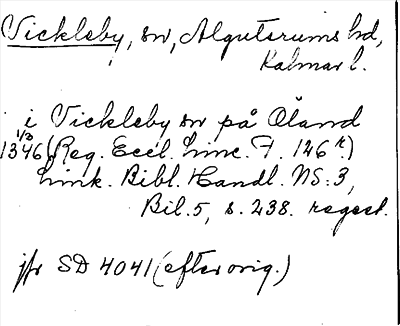 Vickleby, sn, Algutsrums hd,
Kalmar l.
i Vickleby sn på Öland
1/3
1346 (Reg. Eccl. Linc. F. 126 r.)
Link. Bibl. Handl. NS:3,
Bil. 5, s. 238. regest.
jfr SD 4041 (efter orig.)